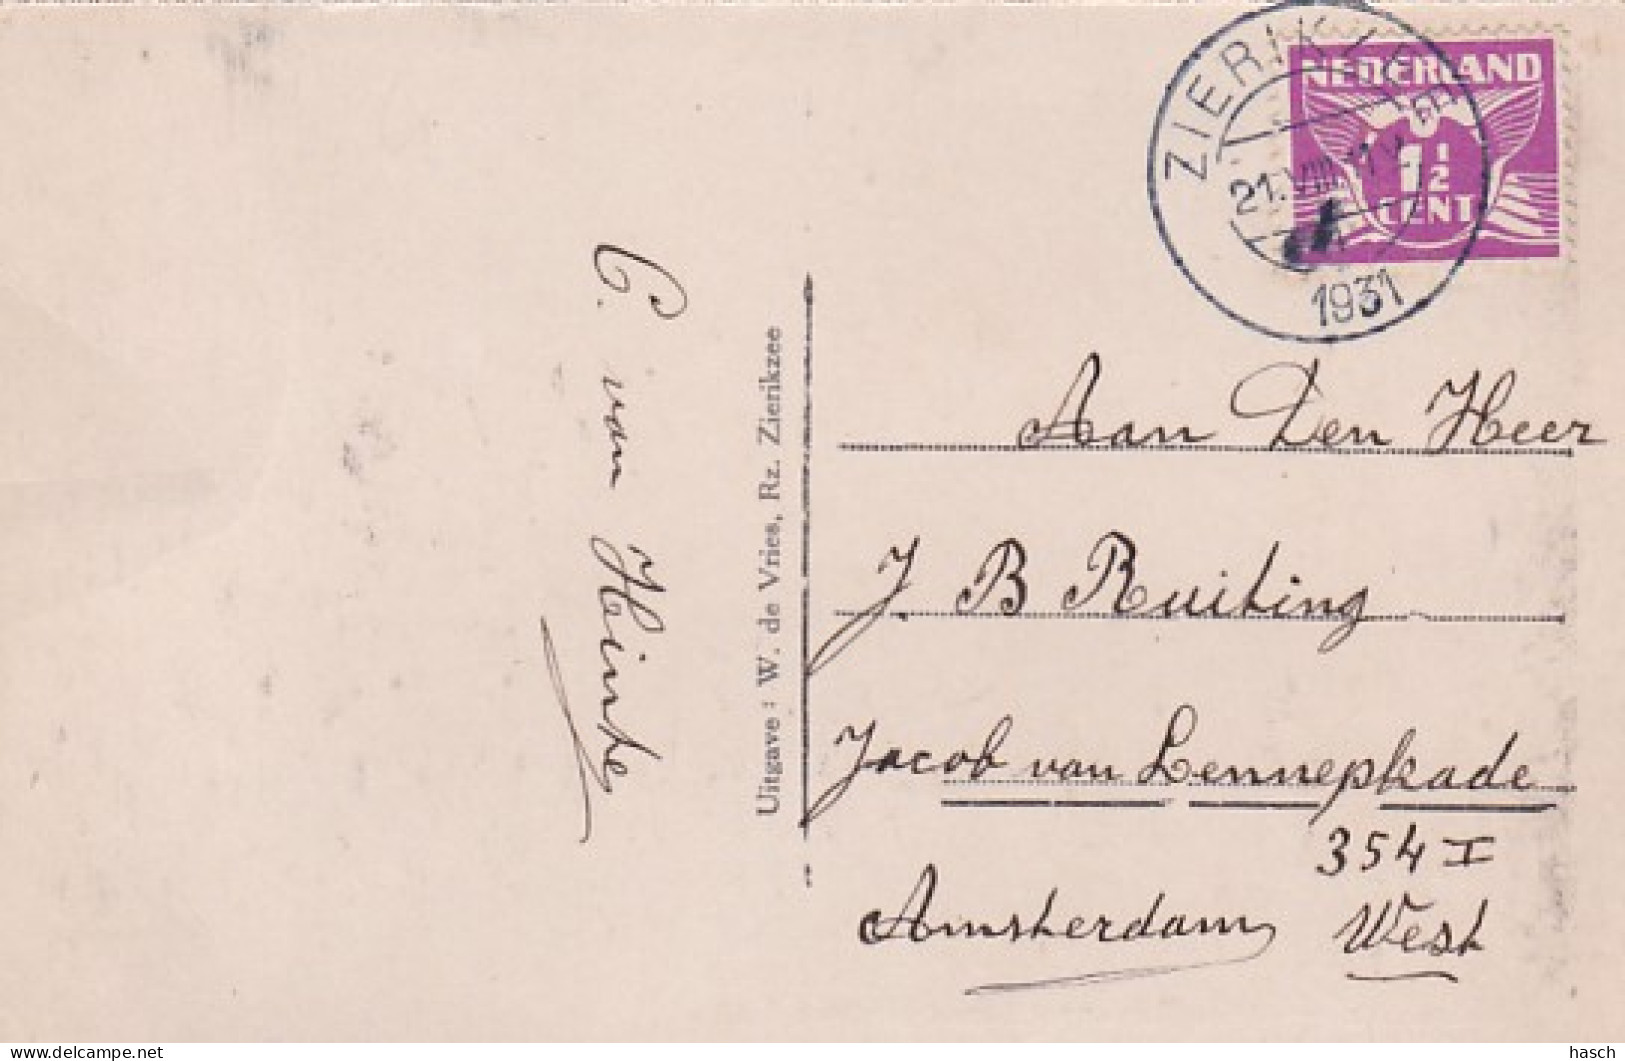 ZIERIKZEE
21.VIII.11 V
1931
NEDERLAND
1½
CENT
C. van Hinte
Uitgave: W. de Vries, Rz. Zierikzee
Aan Den Heer
J B Ruiting
Jacob van Lennepkade
354 I
Amsterdam West
www.delcampe.net
hasch